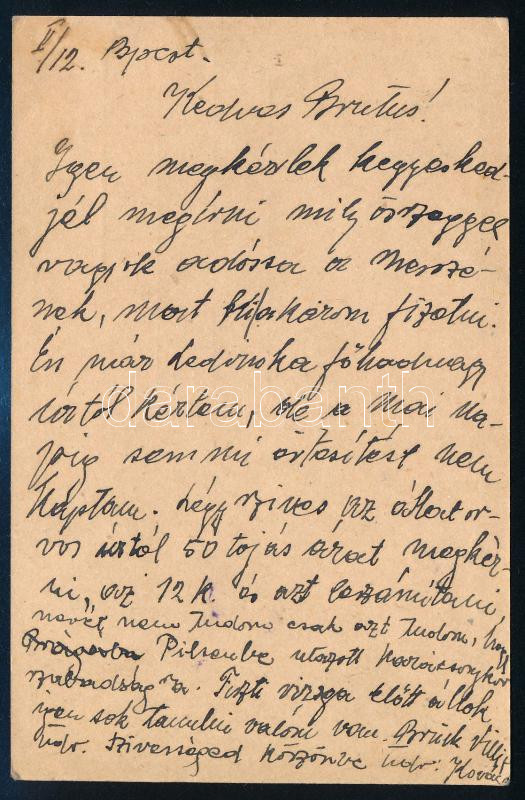 II/12. Bpest.
Kedves Brutus!
Igen megkérlek kegyesked-
jél megirni mily összeggel
vagyok adóssa a
nek, mert ki akarom fizetni.
Én már főhadnagy
úrtól kértem, de a mai na-
pig semmi értesítést nem
kaptam. Légy szives az állator-
vos úrtól 50 tojás árát megkér-
ni, az 12 k. és azt leszámítani
nevét nem tudom csak azt tudom, hogy
Pilsenbe utazott karácsonykor
szabadság ra. Tiszti vizsga előtt állok
igen sok tanulni valóm van.
üdv. Szivességed köszönve üdv: Kovács
darabanth